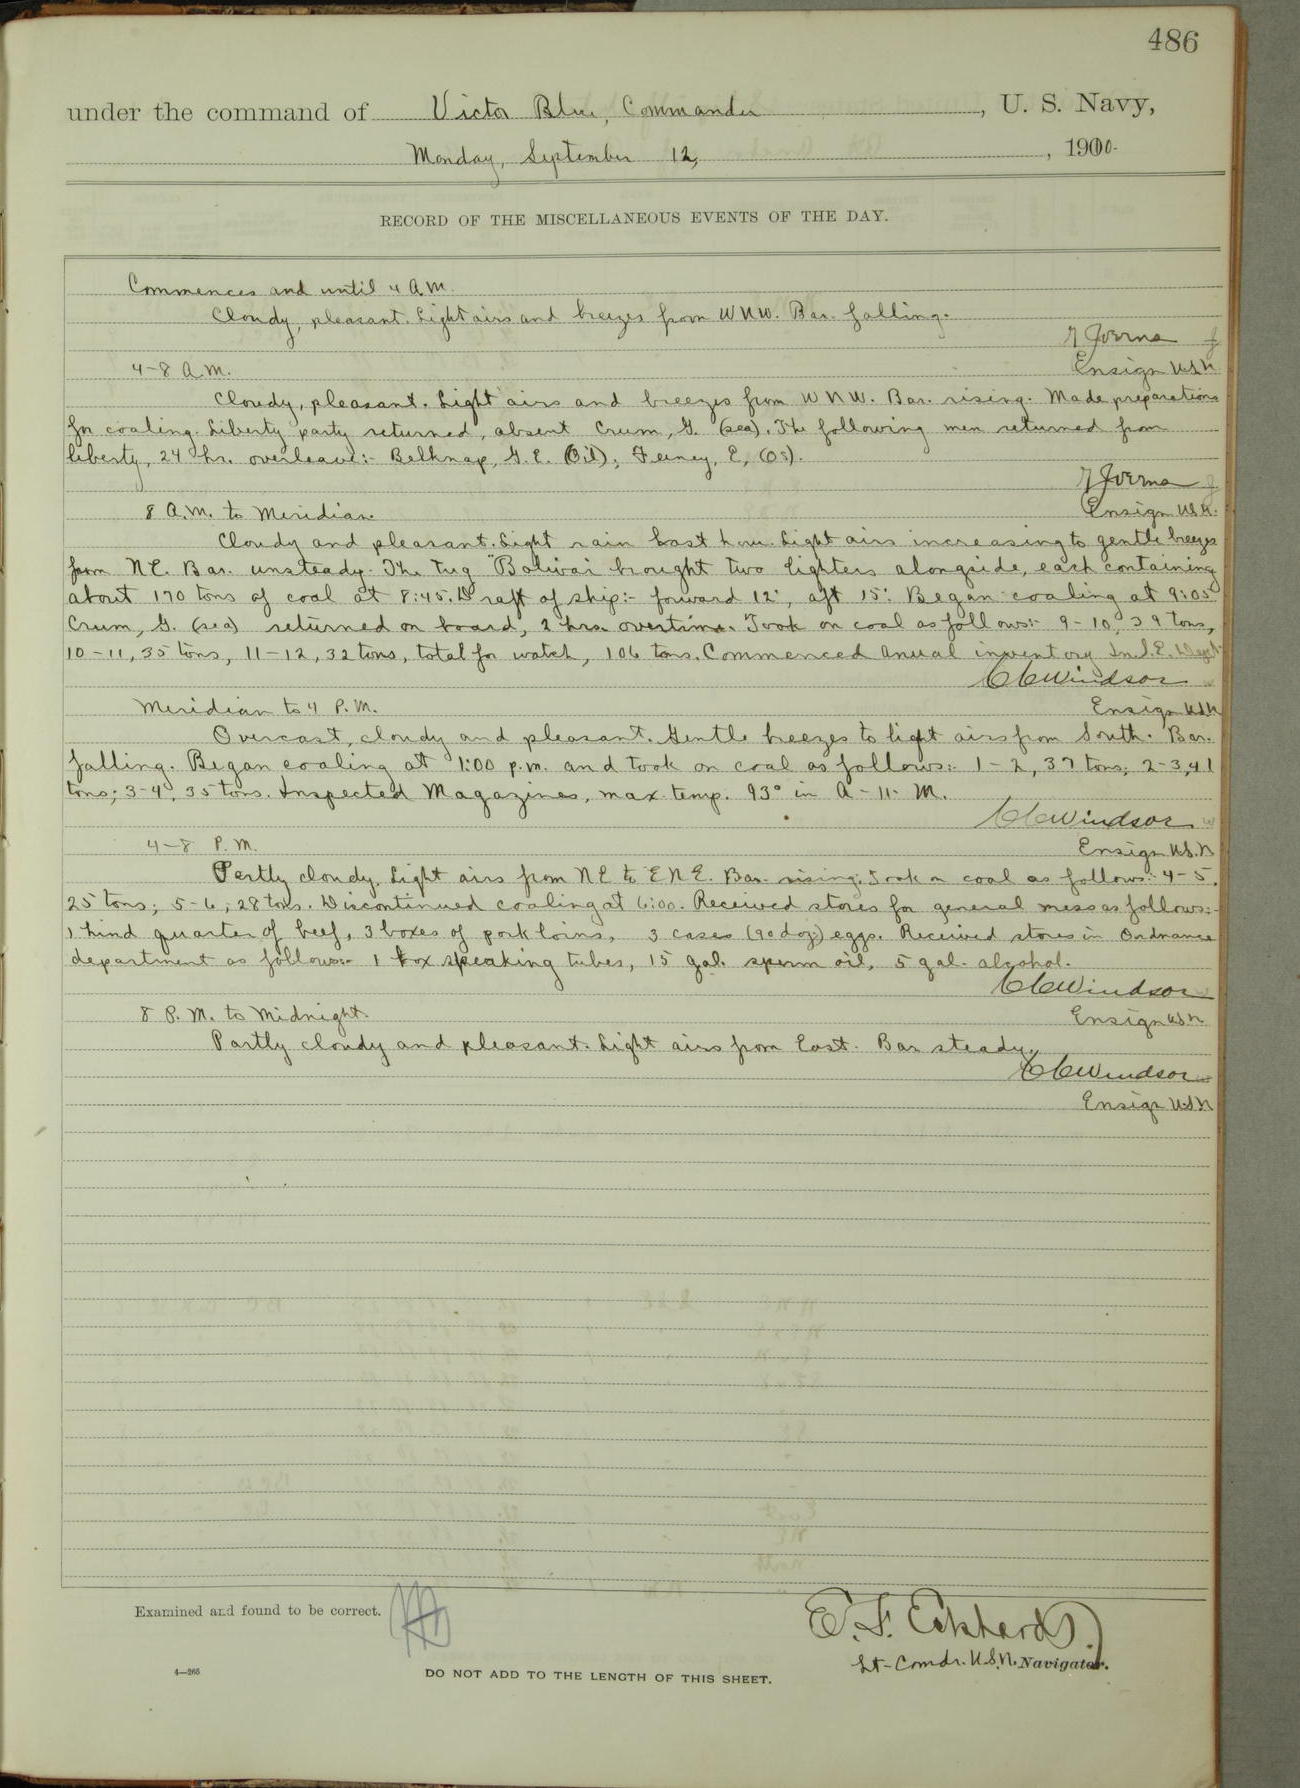 486
under the command of Victor Blue, Commander, U. S. Navy,
Monday, September 12, 1910.
RECORD OF THE MISCELLANEOUS EVENTS OF THE DAY.
Commences and until 4 A.M.
Cloudy, pleasant. Light airs and breezes from WNW. Bar. falling.
4-8 A.M.
Ensign U.S.N.
Cloudy, pleasant. Light airs and breezes from WNW. Bar. rising. Made preparations
for coaling. Liberty party returned, absent Crum, G. (sea). The following men returned from
liberty, 24 hr. overleave:- Belknap, G.E. (Oil), Feeney, E, (Os).
8 A.M. to Meridian.
Ensign U.S.N.
Cloudy and pleasant. Light rain last hour. Light airs increasing to gentle breezes
from NE. Bar. unsteady. The tug "Bolivar brought two lighters alongside, each containing
about 170 tons of coal at 8:45. Draft of ship:- forward 12', aft 15'. Began coaling at 9:05
Crum, G. (sea) returned on board, 2 hrs. overtime. Took on coal as follows:- 9-10, 39 tons,
10-11, 35 tons, 11-12, 32 tons, total for watch, 106 tons. Commenced anual inventory in S.E. Dept.
C C Windsor
Meridian to 4 P.M.
Ensign U.S.N
Overcast, cloudy and pleasant. Gentle breezes to light airs from South. Bar.
falling. Began coaling at 1:00 p.m. and took on coal as follows:- 1-2, 37 tons; 2-3, 41
tons; 3-4, 35 tons. Inspected Magazines, max. temp. 93° in A-11-M.
C C Windsor
4-8 P.M.
Ensign U.S.N
Partly cloudy. Light airs from NE to ENE. Bar. rising. Took on coal as follows:- 4-5,
25 tons; 5-6, 28 tons. Discontinued coaling at 6:00. Received stores for general mess as follows:-
1 hind quarter of beef, 3 boxes of pork loins, 3 cases (90 doz) eggs. Received stores in Ordnance
department as follows:- 1 box speaking tubes, 15 gal. sperm oil, 5 gal. alcohol.
C C Windsor
8 P.M. to Midnight.
Ensign U.S.N.
Partly cloudy and pleasant. Light airs from East. Bar steady.
C C Windsor
Ensign U.S.N
Examined and found to be correct.
Lt-Comdr. U.S.N. Navigator.
4—265
DO NOT ADD TO THE LENGTH OF THIS SHEET.